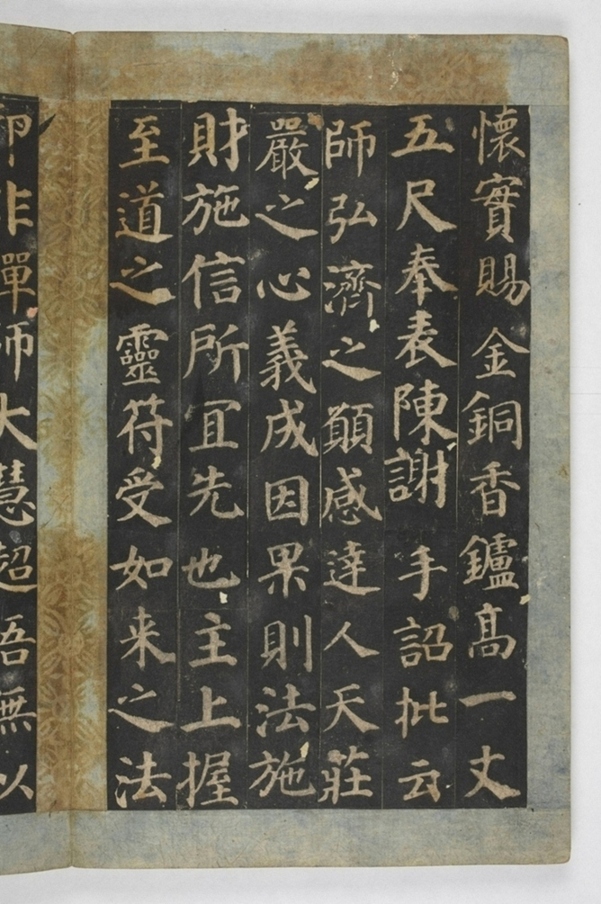 懷實賜金銅香鑪髙一丈
五尺奉表陳謝手詔批云
師弘濟之願感達人天莊
嚴之心義成因果則法施
財施信所冝先也主上握
至道之靈符受如来之法
印非禪師大慧超悟無以